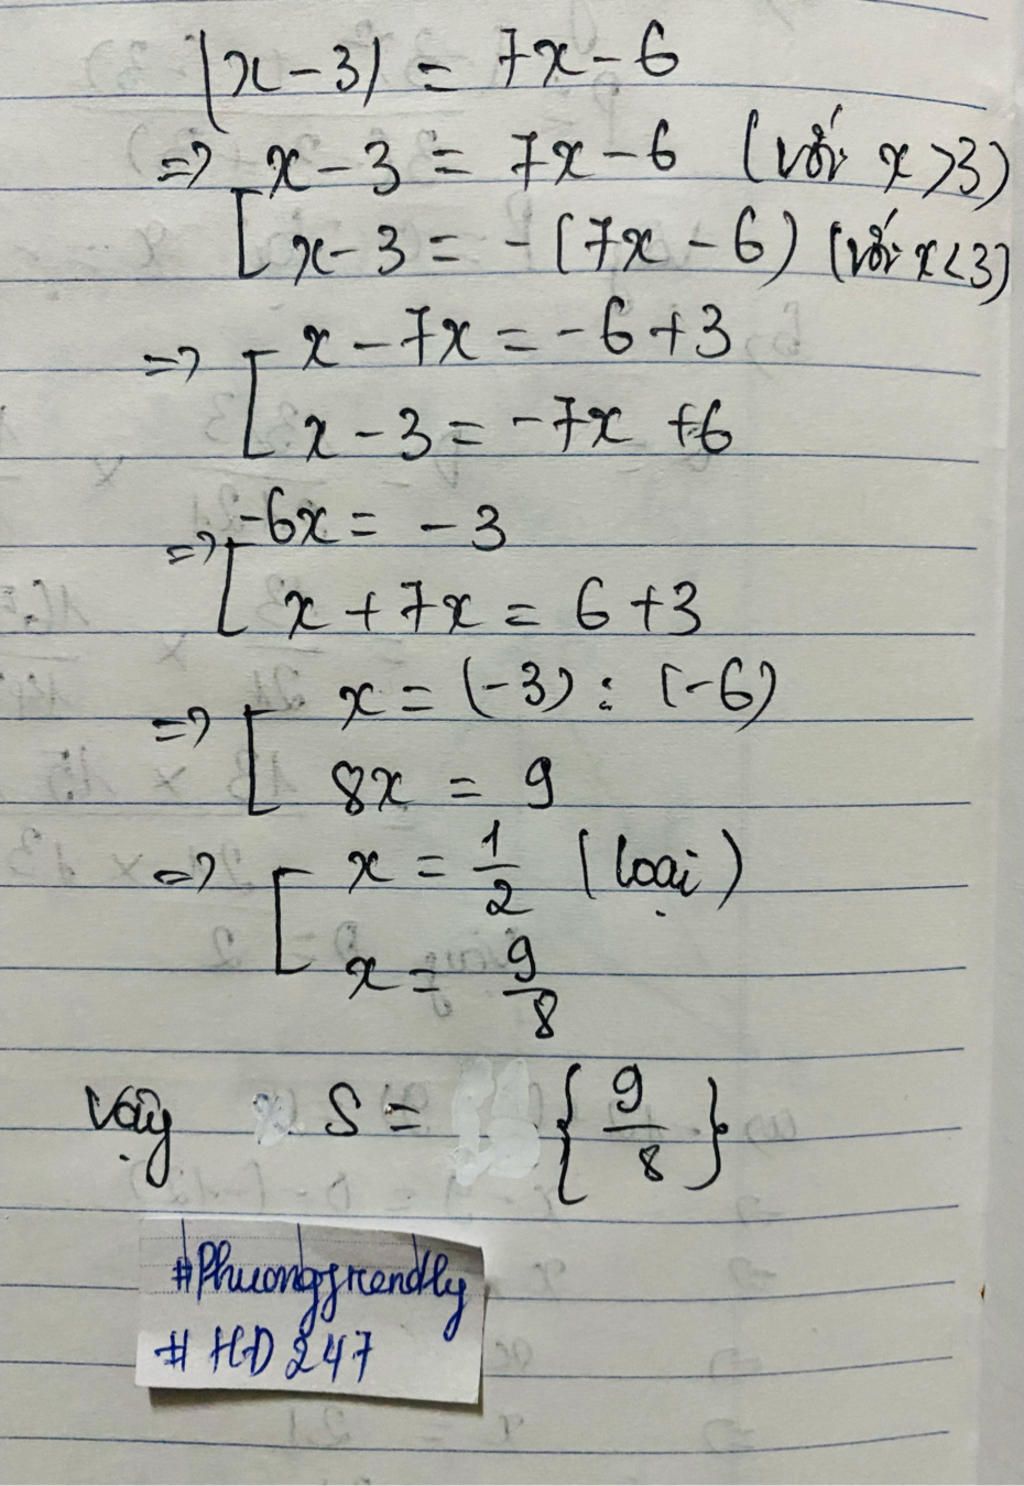 |x-3| = 7x-6
=> x-3 = 7x-6 (với x>3)
[ x-3 = -(7x-6) (với x<3)
=> [ x-7x = -6+3
x-3 = -7x +6
=> [ -6x = -3
x+7x = 6+3
=> [ x = (-3) : (-6)
8x = 9
=> [ x = 1/2 (loại)
x = 9/8
Vậy S = { 9/8 }
#Phuonggfrendly
#HD247